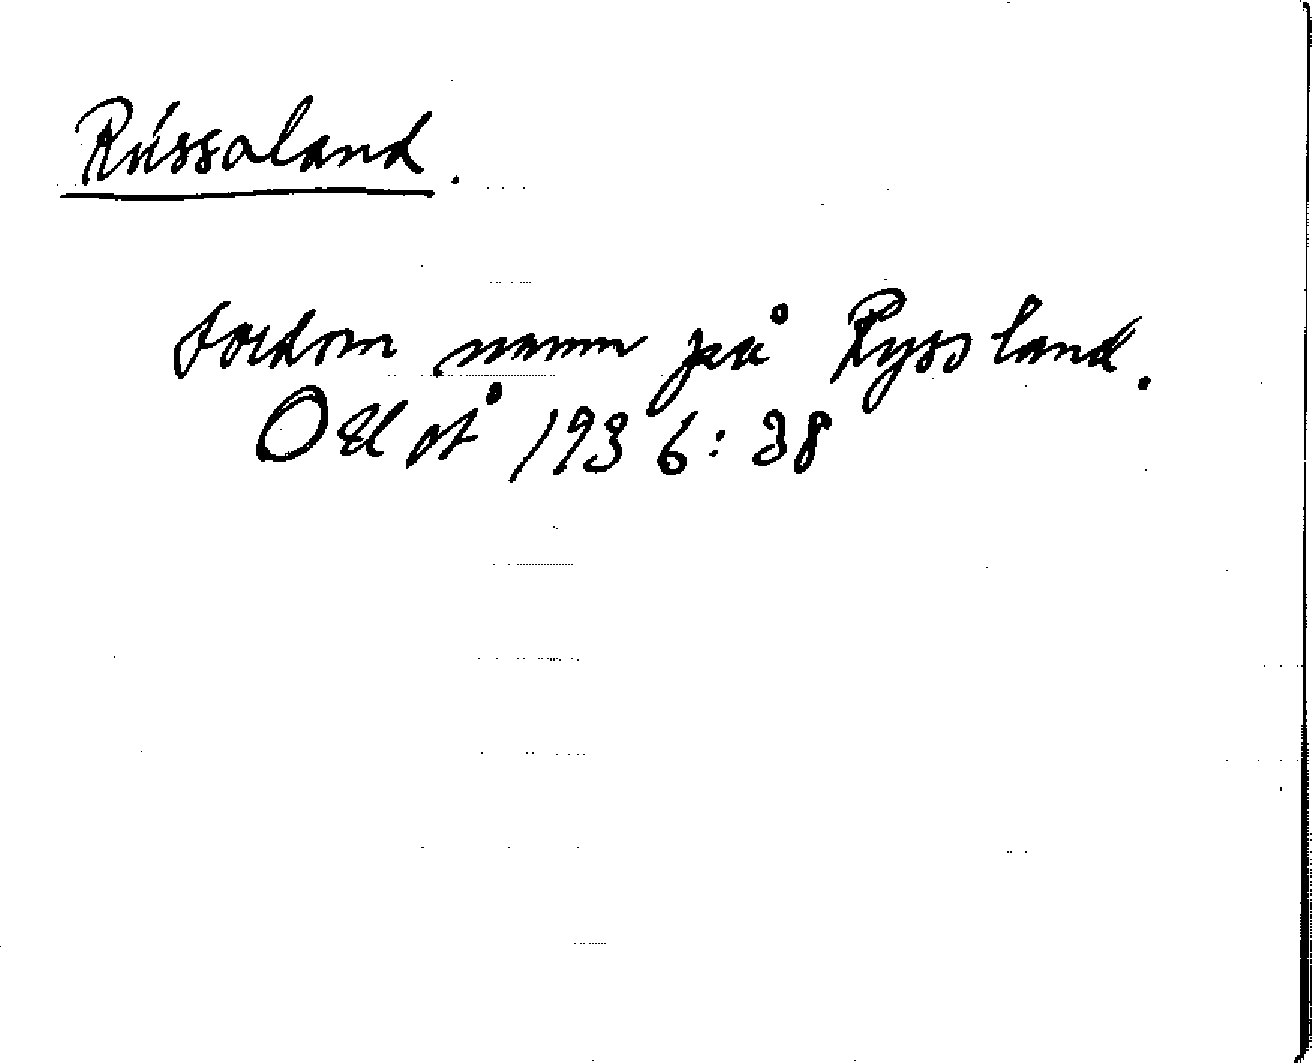 Rússaland.
fordom namn på Ryssland.
1936:38